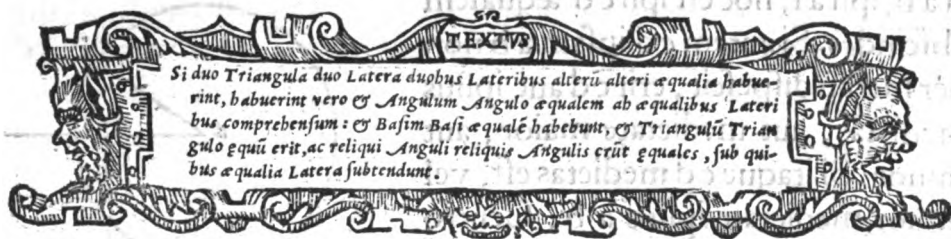 TEXTVS
Si duo Triangula duo Latera duobus Lateribus alterū alteri æqualia habue-
rint, habuerint vero & Angulum Angulo æqualem ab æqualibus Lateri
bus comprehensum: & Basim Basi æqualē habebunt, & Triangulū Trian
gulo ęquū erit, ac reliqui Anguli reliquis Angulis erūt ęquales, sub qui-
bus æqualia Latera subtendunt.